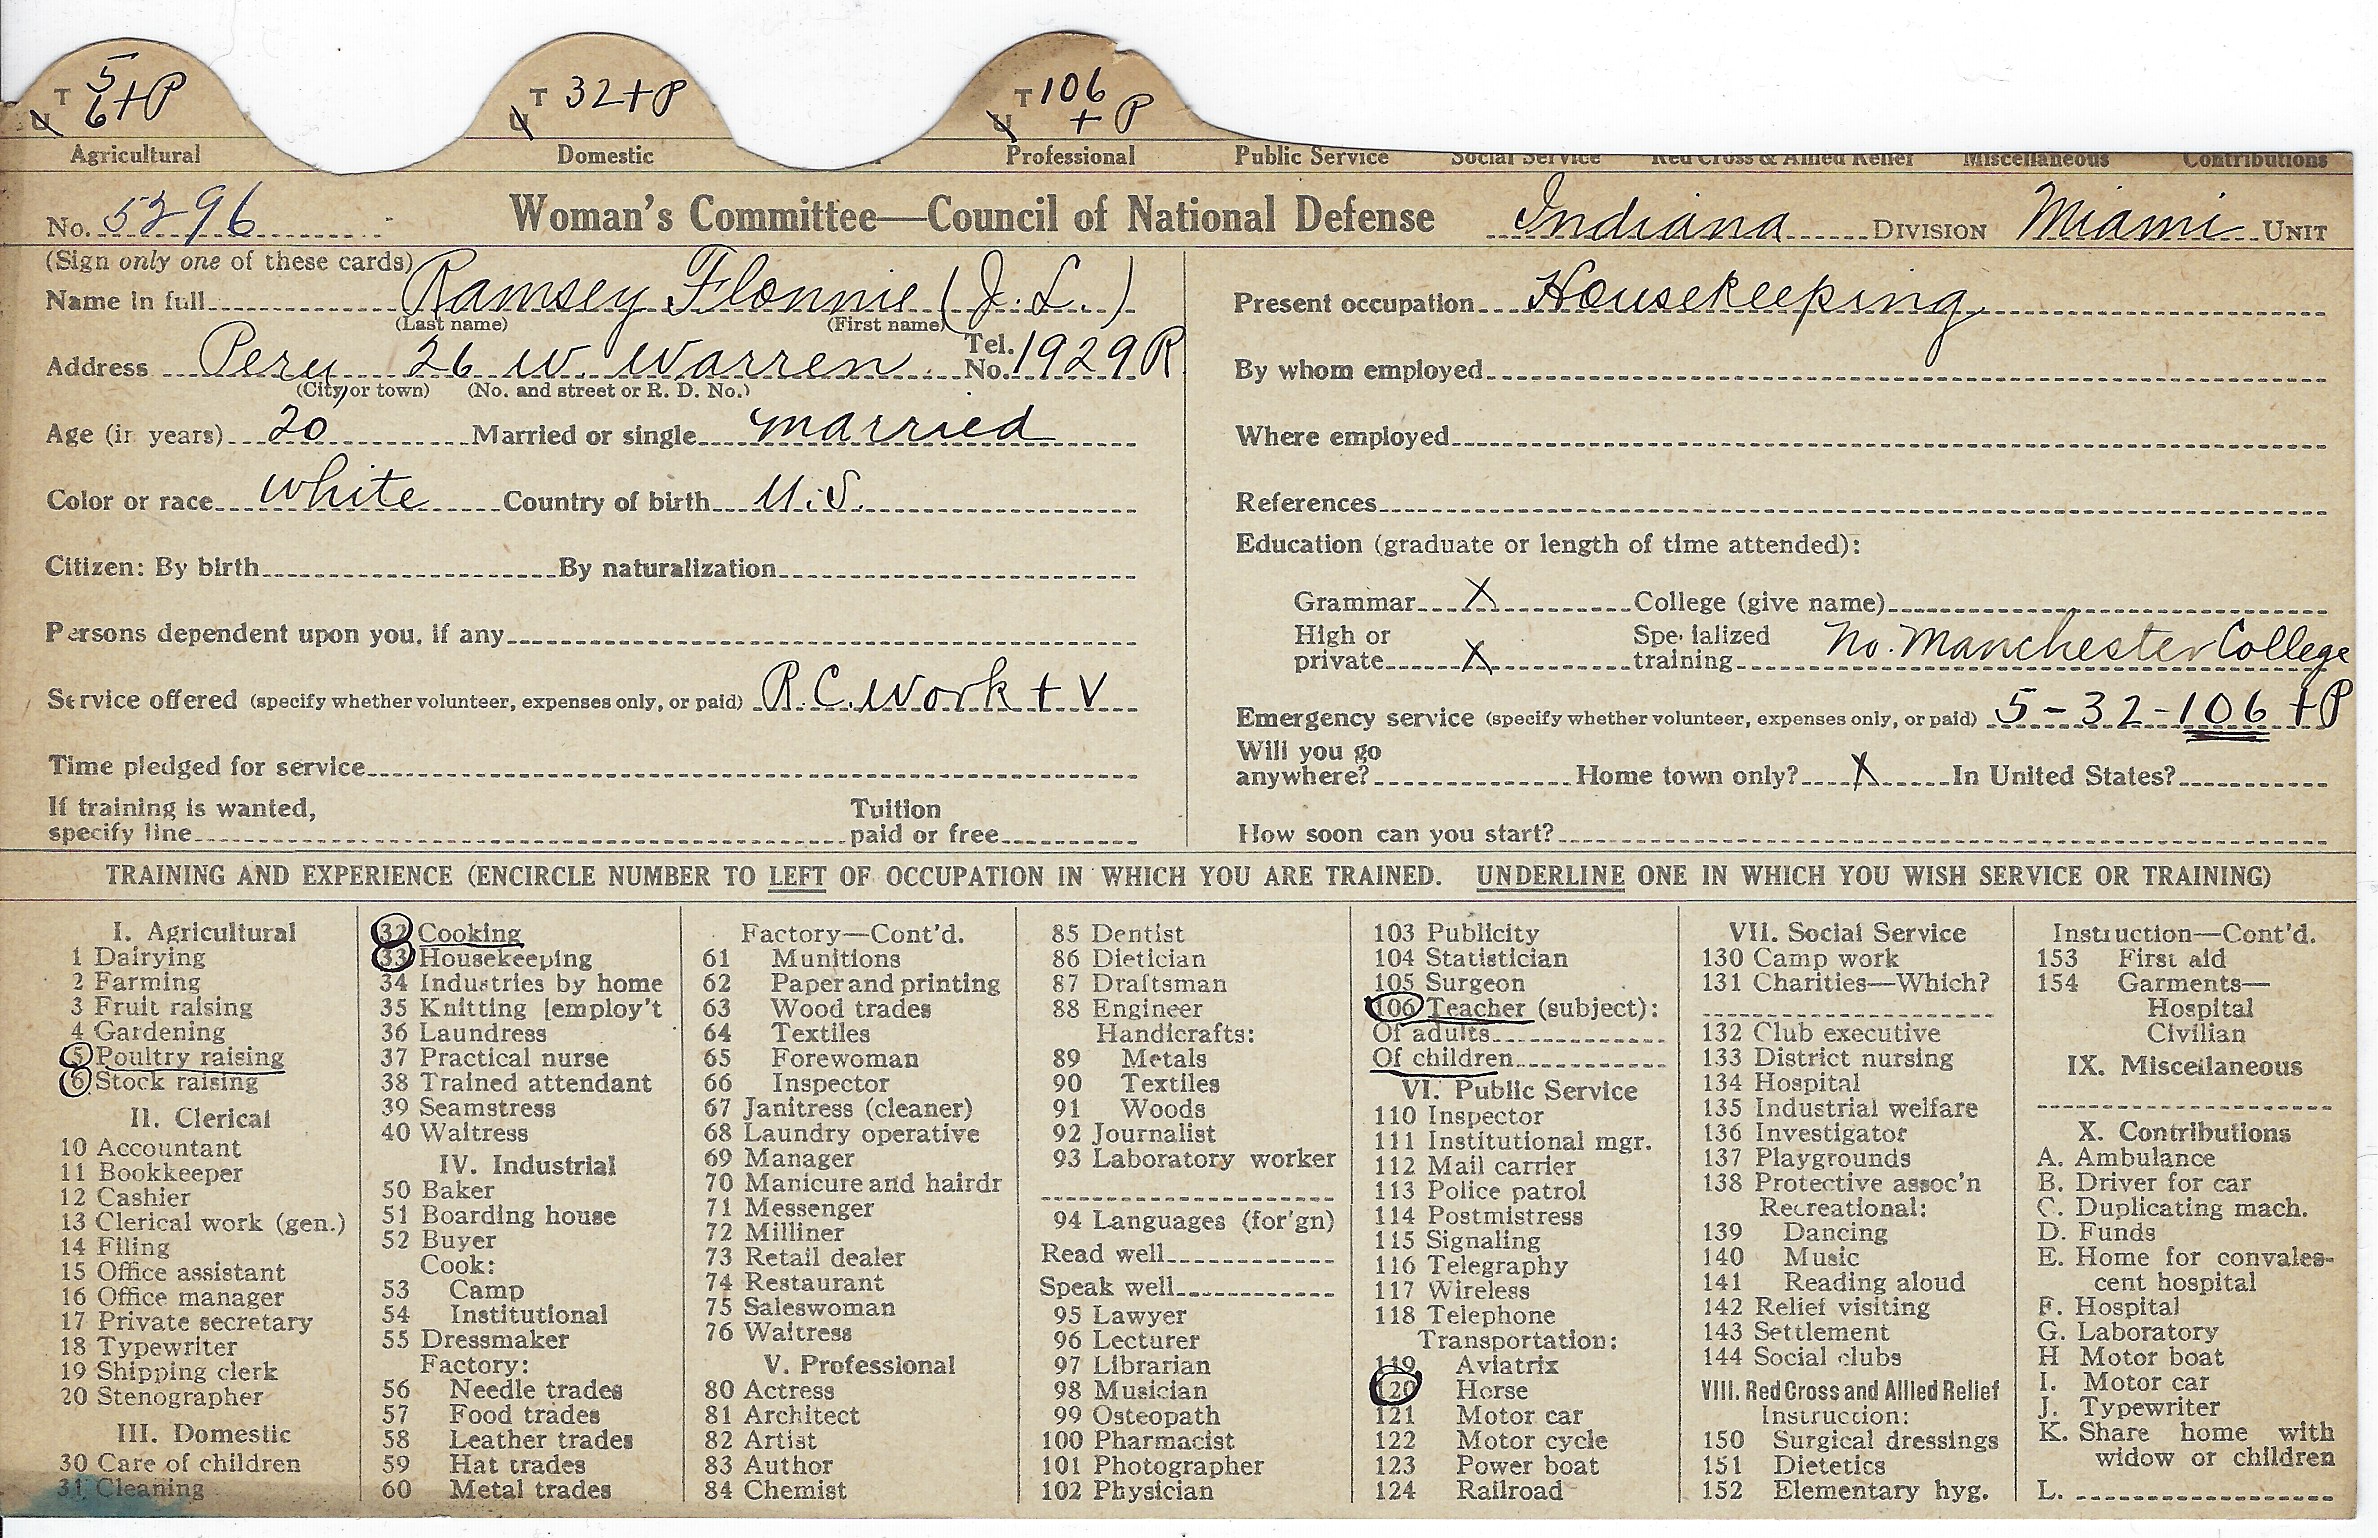 T 5 6 + P
U
T 32 + P
U
T 106 + P
U
Agricultural Domestic Professional Public Service Social Service Red Cross & Allied Relief Miscellaneous Contributions
No. 5296 Woman's Committee—Council of National Defense Indiana DIVISION Miami UNIT
(Sign only one of these cards)
Name in full Ramsey Flonnie (J. L.)
(Last name) (First name)
Address Peru 26 W. Warren Tel. No. 1929 R
(City or town) (No. and street or R. D. No.)
Age (in years) 20 Married or single married
Color or race white Country of birth U.S.
Citizen: By birth By naturalization
Persons dependent upon you, if any
Service offered (specify whether volunteer, expenses only, or paid) R.C. Work + V
Time pledged for service
If training is wanted, specify line Tuition paid or free
Present occupation Housekeeping
By whom employed
Where employed
References
Education (graduate or length of time attended):
Grammar X College (give name)
High or private X Specialized training No. Manchester College
Emergency service (specify whether volunteer, expenses only, or paid) 5-32-106 + P
Will you go anywhere? Home town only? X In United States?
How soon can you start?
TRAINING AND EXPERIENCE (ENCIRCLE NUMBER TO LEFT OF OCCUPATION IN WHICH YOU ARE TRAINED. UNDERLINE ONE IN WHICH YOU WISH SERVICE OR TRAINING)
I. Agricultural
1 Dairying
2 Farming
3 Fruit raising
4 Gardening
5 Poultry raising
6 Stock raising
II. Clerical
10 Accountant
11 Bookkeeper
12 Cashier
13 Clerical work (gen.)
14 Filing
15 Office assistant
16 Office manager
17 Private secretary
18 Typewriter
19 Shipping clerk
20 Stenographer
III. Domestic
30 Care of children
31 Cleaning
32 Cooking
33 Housekeeping
34 Industries by home
35 Knitting [employ't
36 Laundress
37 Practical nurse
38 Trained attendant
39 Seamstress
40 Waitress
IV. Industrial
50 Baker
51 Boarding house
52 Buyer
Cook:
53 Camp
54 Institutional
55 Dressmaker
Factory:
56 Needle trades
57 Food trades
58 Leather trades
59 Hat trades
60 Metal trades
Factory—Cont'd.
61 Munitions
62 Paper and printing
63 Wood trades
64 Textiles
65 Forewoman
66 Inspector
67 Janitress (cleaner)
68 Laundry operative
69 Manager
70 Manicure and hairdr
71 Messenger
72 Milliner
73 Retail dealer
74 Restaurant
75 Saleswoman
76 Waitress
V. Professional
80 Actress
81 Architect
82 Artist
83 Author
84 Chemist
85 Dentist
86 Dietician
87 Draftsman
88 Engineer
Handicrafts:
89 Metals
90 Textiles
91 Woods
92 Journalist
93 Laboratory worker
94 Languages (for'gn)
Read well
Speak well
95 Lawyer
96 Lecturer
97 Librarian
98 Musician
99 Osteopath
100 Pharmacist
101 Photographer
102 Physician
103 Publicity
104 Statistician
105 Surgeon
106 Teacher (subject):
Of adults
Of children
VI. Public Service
110 Inspector
111 Institutional mgr.
112 Mail carrier
113 Police patrol
114 Postmistress
115 Signaling
116 Telegraphy
117 Wireless
118 Telephone
Transportation:
119 Aviatrix
120 Horse
121 Motor car
122 Motor cycle
123 Power boat
124 Railroad
VII. Social Service
130 Camp work
131 Charities—Which?
132 Club executive
133 District nursing
134 Hospital
135 Industrial welfare
136 Investigator
137 Playgrounds
138 Protective assoc'n
Recreational:
139 Dancing
140 Music
141 Reading aloud
142 Relief visiting
143 Settlement
144 Social clubs
VIII. Red Cross and Allied Relief
Instruction:
150 Surgical dressings
151 Dietetics
152 Elementary hyg.
Instruction—Cont'd.
153 First aid
154 Garments—
Hospital
Civilian
IX. Miscellaneous
X. Contributions
A. Ambulance
B. Driver for car
C. Duplicating mach.
D. Funds
E. Home for convales-
cent hospital
F. Hospital
G. Laboratory
H Motor boat
I. Motor car
J. Typewriter
K. Share home with
widow or children
L.